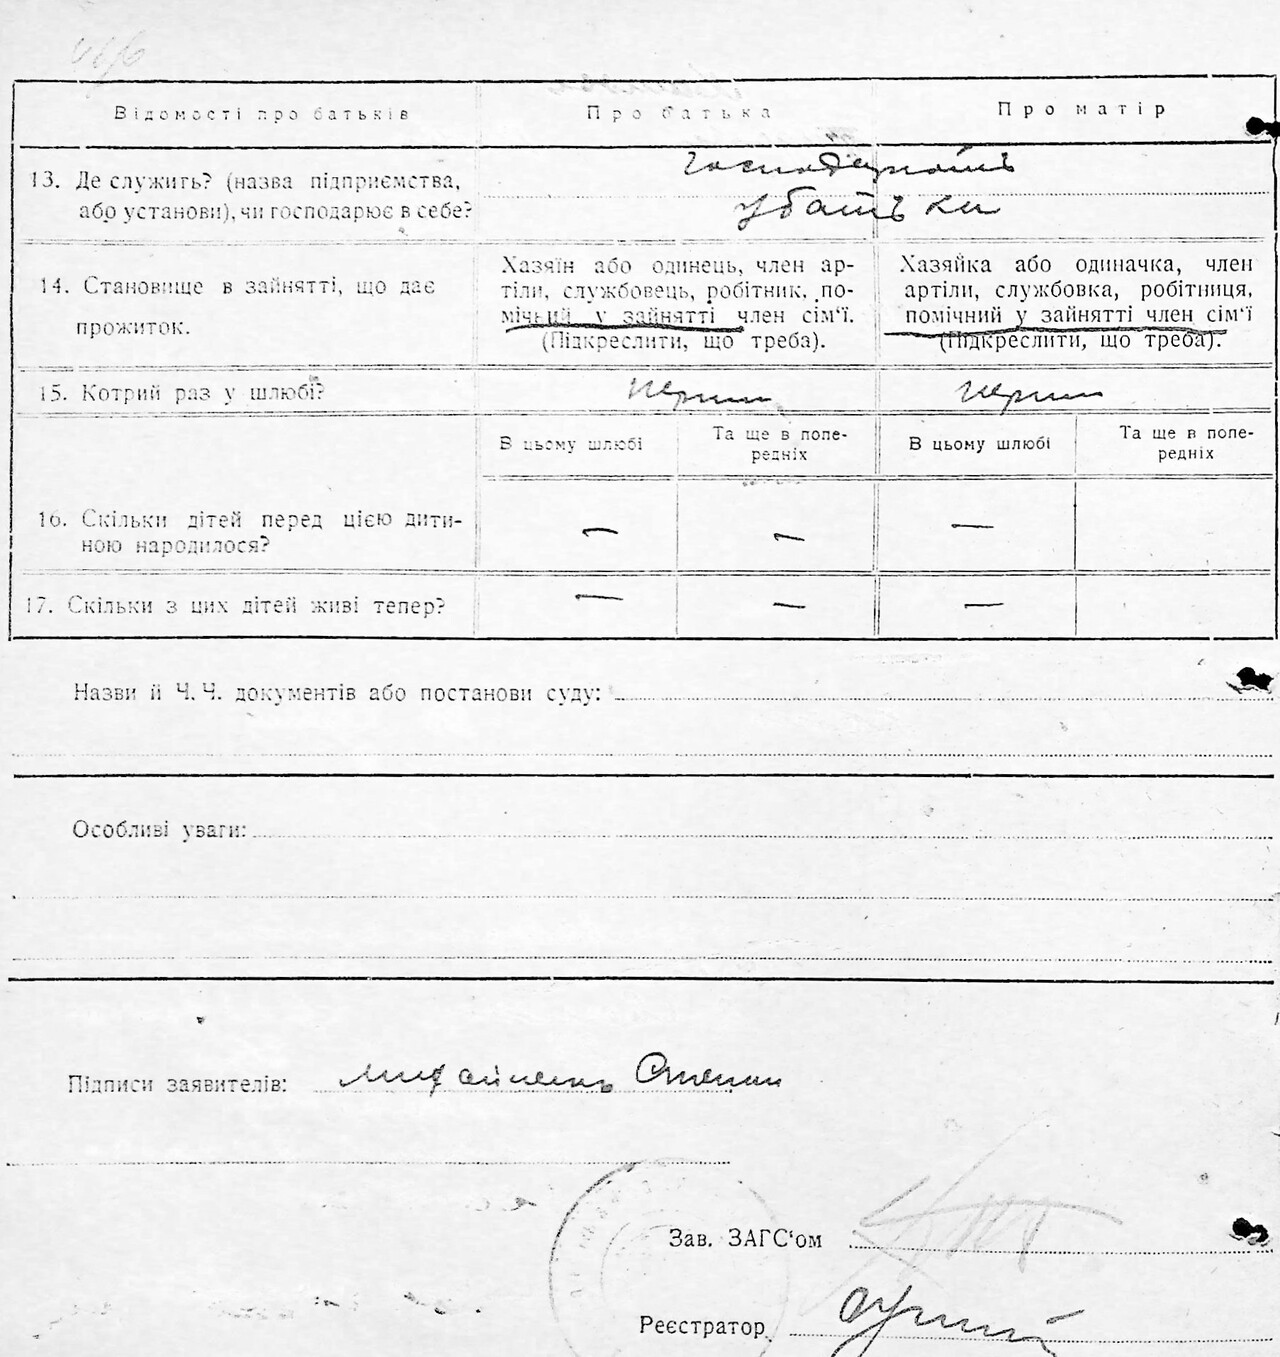 Відомості про батьків
Про батька
Про матір
13. Де служить? (назва підприємства,
або установи), чи господарює в себе?
господарюють
у батьків
14. Становище в зайнятті, що дає
прожиток.
Хазяїн або одинець, член ар-
тіли, службовець, робітник, по-
мічний у зайнятті член сім‘ї.
(Підкреслити, що треба).
Хазяйка або одиначка, член
артіли, службовка, робітниця,
помічний у зайнятті член сім‘ї
(Підкреслити, що треба).
15. Котрий раз у шлюбі?
перший
перший
В цьому шлюбі
Та ще в попе-
редніх
В цьому шлюбі
Та ще в попе-
редніх
16. Скільки дітей перед цією дити-
ною народилося?
— — —
17. Скільки з цих дітей живі тепер?
— — —
Назви й Ч. Ч. документів або постанови суду:
Особливі уваги:
Підписи заявителів:
Зав. ЗАГС‘ом
Реєстратор